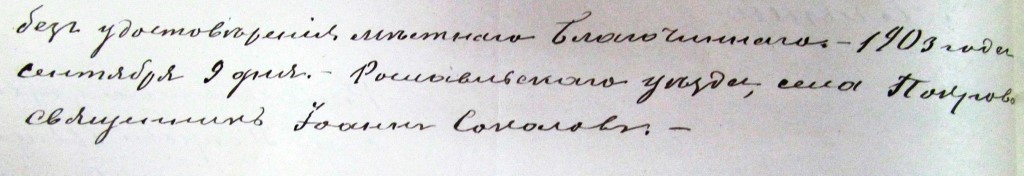 безъ удостовѣренія мѣстнаго Благочиннаго. – 1903 года
сентября 9 дня. – Рославльскаго уѣзда, села Покрово
священникъ Іоаннъ Соколовъ. –